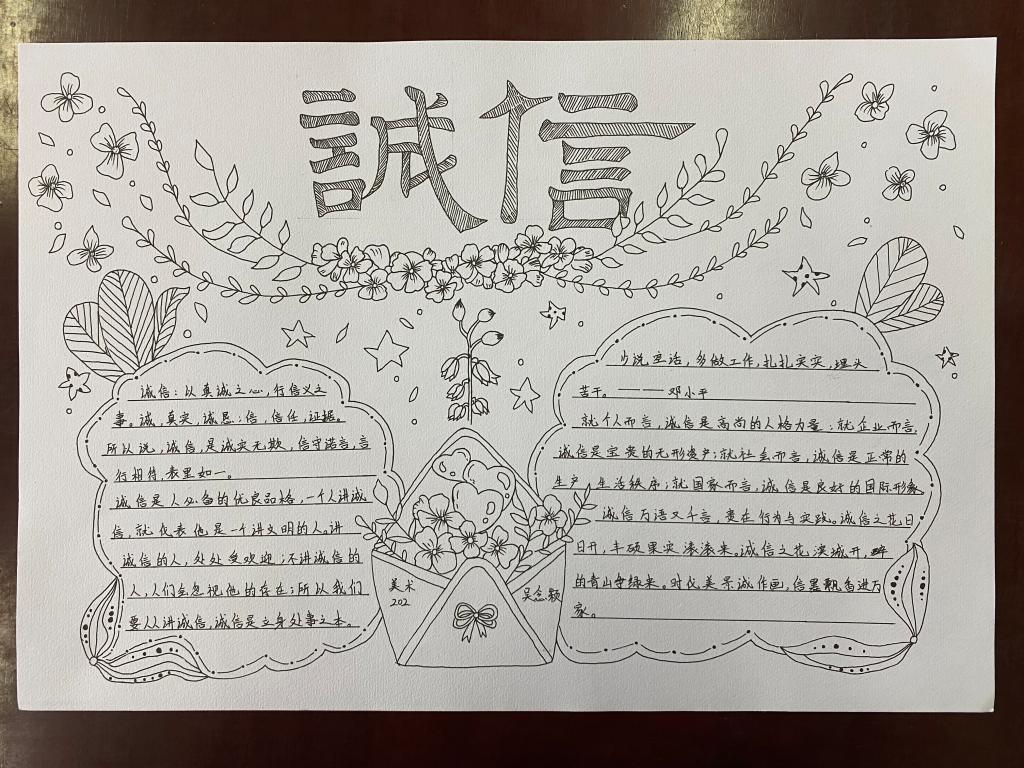 誠信
诚信：以真诚之心，行信义之
事。诚，真实，诚恳；信，信任，证据。
所以说，诚信，是诚实无欺，信守诺言，言
行相符，表里如一。
诚信是人必备的优良品格，一个人讲诚
信，就代表他是一个讲文明的人。讲
诚信的人，处处受欢迎；不讲诚信的
人，人们会忽视他的存在；所以我们
要人人讲诚信，诚信是立身处事之本。
少说空话，多做工作，扎扎实实，埋头
苦干。——邓小平
就个人而言，诚信是高尚的人格力量；就企业而言，
诚信是宝贵的无形资产；就社会而言，诚信是正常的
生产，生活秩序；就国家而言，诚信是良好的国际形象
诚信万语又千言，贵在行为与实践。诚信之花日
日开，丰硕果实滚滚来。诚信之花满城开，
的青山争绿来。时代美景诚作画，信墨飘香进万
家。
美术
202
吴念颖